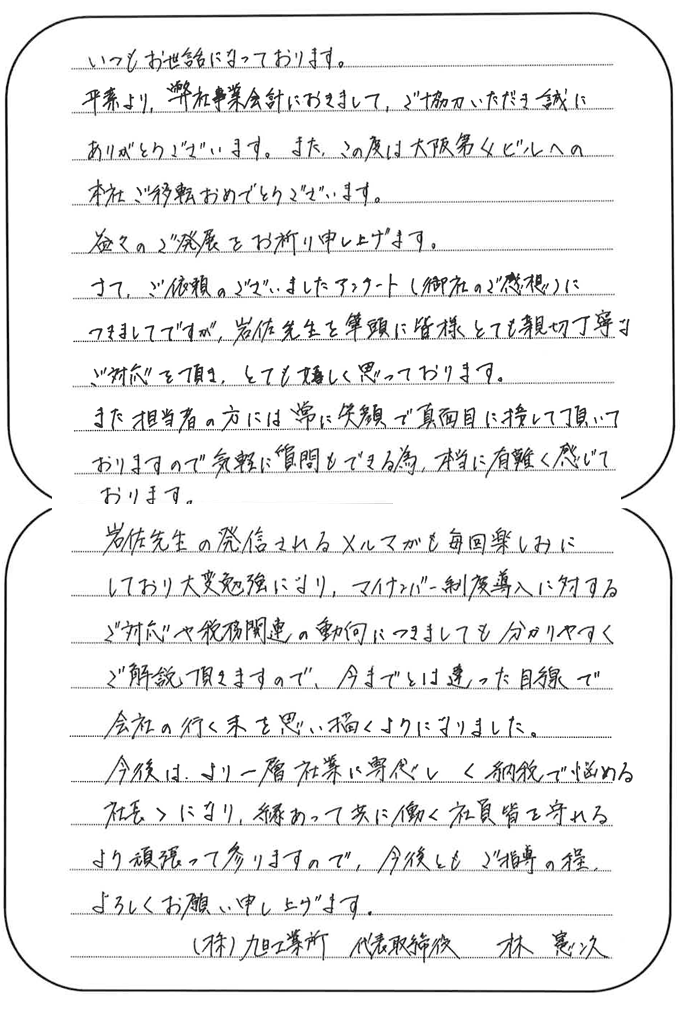 いつもお世話になっております。
平素より、弊社事業会計におきまして、ご協力いただき誠に
ありがとうございます。また、この度は大阪第4ビルへの
本社ご移転おめでとうございます。
益々のご発展をお祈り申し上げます。
さて、ご依頼のございましたアンケート(御社のご感想)に
つきましてですが、岩佐先生を筆頭に皆様とても親切丁寧な
ご対応を頂き、とても嬉しく思っております。
また担当者の方には常に笑顔で真面目に接して頂いて
おりますので気軽に質問もできる為、本当に有難く感じて
おります。
岩佐先生の発信されるメルマガも毎回楽しみに
しており大変勉強になり、マイナンバー制度導入に対する
ご対応や税務関連の動向につきましても分かりやすく
ご解説頂きますので、今までとは違った目線で
会社の行く末を思い描くようになりました。
今後は、より一層社業に専念し く納税で悩める
社長>になり、縁あって共に働く社員皆を守れる
より頑張って参りますので、今後とも ご指導の程、
よろしくお願い申し上げます。
(株)旭工業所 代表取締役 林 憲次